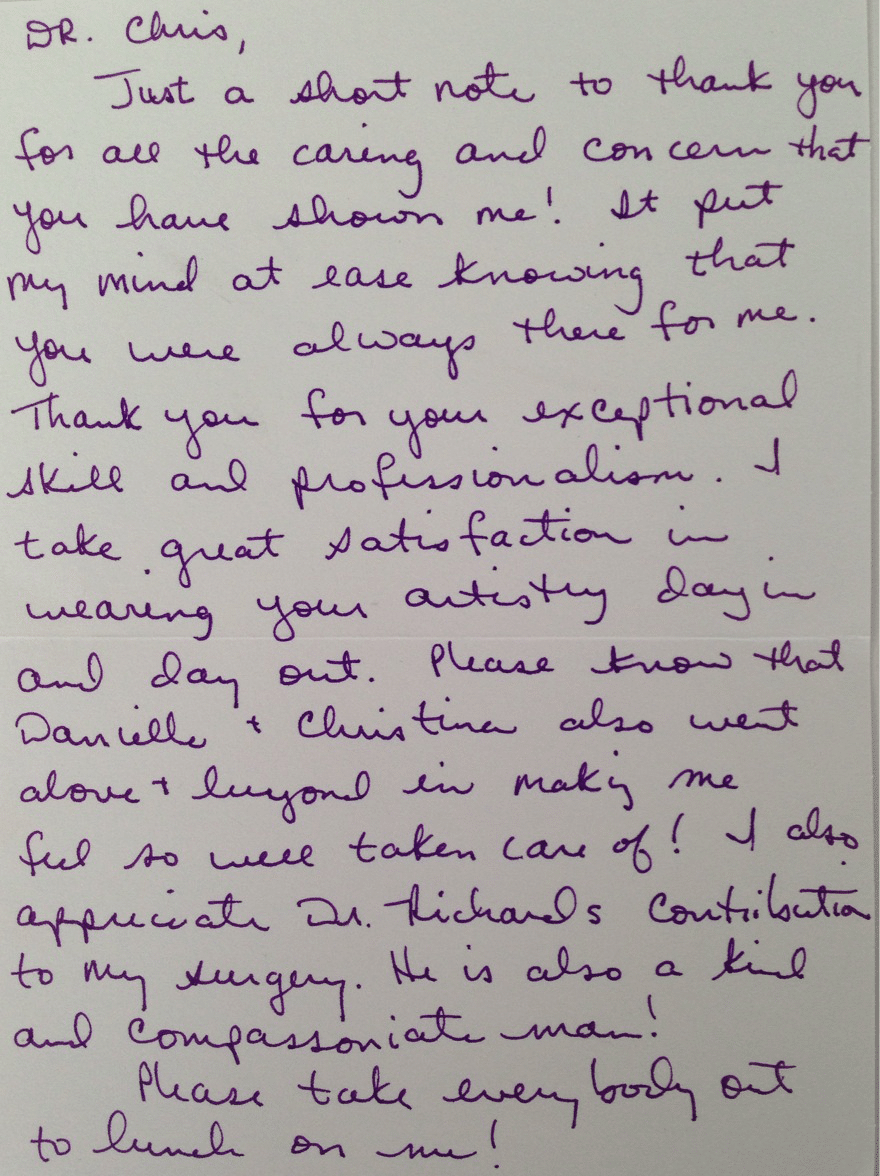 DR. Chris,
Just a short note to thank you
for all the caring and concern that
you have shown me! It put
my mind at ease knowing that
you were always there for me.
Thank you for your exceptional
skill and professionalism. I
take great satisfaction in
wearing your artistry day in
and day out. Please know that
Danielle + Christina also went
above + beyond in making me
feel so well taken care of! I also
appreciate Dr. Richards contribution
to my surgery. He is also a kind
and compassoniate man!
Please take everybody out
to lunch on me!